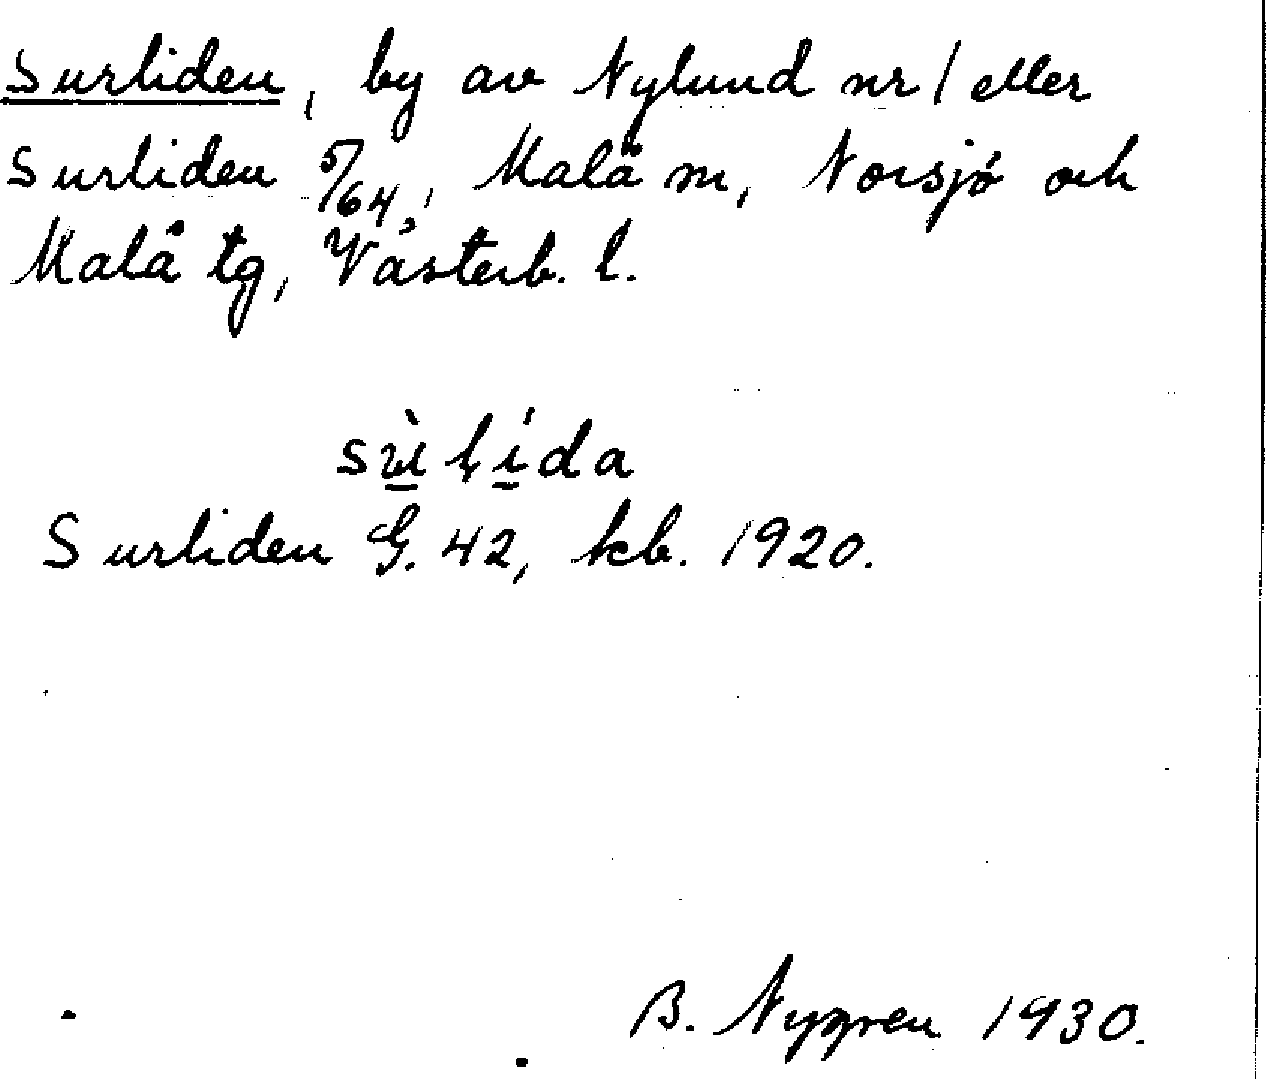 Surliden, by av Nylund nr 1 eller
Surliden 5/64, Malå sn, Norsjö och
Malå tg, Västerb. l.
sù̲ḷí̲da
Surliden G. 42, kb. 1920.
B. Nygren 1930.